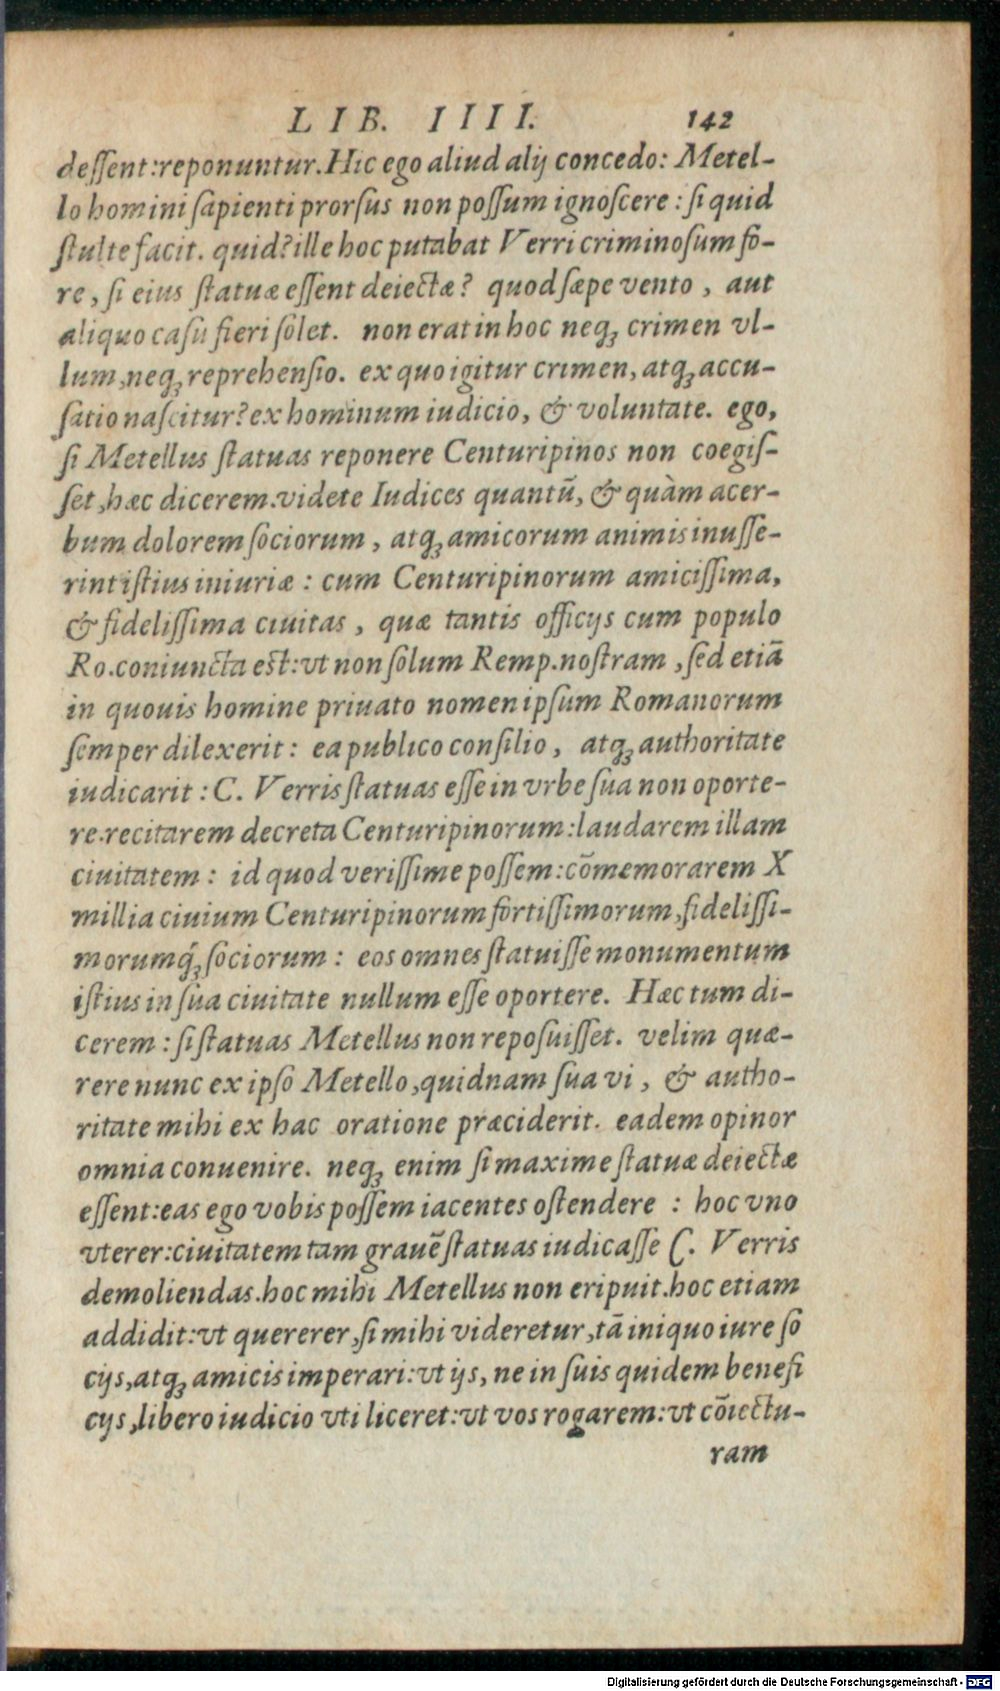 LIB. IIII. 142
deſſent:reponuntur.Hic ego aliud alij concedo: Metel-
lo homini ſapienti prorſus non poſſum ignoſcere : ſi quid
ſtulte facit. quid? ille hoc putabat Verri criminoſum fo-
re, ſi eius ſtatuæ eſſent deiectæ? quod ſæpe vento, aut
aliquo caſu fieri ſolet. non erat in hoc neqꝫ crimen vl-
lum, neqꝫ reprehenſio. ex quo igitur crimen, atqꝫ accu-
ſatio naſcitur? ex hominum iudicio, & voluntate. ego,
ſi Metellus ſtatuas reponere Centuripinos non coegiſ-
ſet, hæc dicerem. videte Iudices quantū, & quàm acer-
bum dolorem ſociorum, atqꝫ amicorum animis inuſſe-
rint iſtius iniuriæ : cum Centuripinorum amiciſſima,
& fideliſſima ciuitas, quæ tantis officijs cum populo
Ro.coniuncta eſt:vt non ſolum Remp.noſtram, ſed etiā
in quouis homine priuato nomen ipſum Romanorum
ſemper dilexerit : ea publico conſilio, atqꝫ authoritate
iudicarit : C. Verris ſtatuas eſſe in vrbe ſua non oporte-
re.recitarem decreta Centuripinorum:laudarem illam
ciuitatem : id quod veriſſime poſſem:cōmemorarem X
millia ciuium Centuripinorum fortiſſimorum, fideliſſi-
morumq́ꝫ ſociorum : eos omnes ſtatuiſſe monumentum
iſtius in ſua ciuitate nullum eſſe oportere. Hæc tum di-
cerem : ſi ſtatuas Metellus non repoſuiſſet. velim quæ-
rere nunc ex ipſo Metello, quidnam ſua vi, & autho-
ritate mihi ex hac oratione præciderit. eadem opinor
omnia conuenire. neqꝫ enim ſi maxime ſtatuæ deiectæ
eſſent:eas ego vobis poſſem iacentes oſtendere : hoc vno
vterer:ciuitatem tam grauē ſtatuas iudicaſſe C. Verris
demoliendas.hoc mihi Metellus non eripuit.hoc etiam
addidit:vt quererer, ſi mihi videretur, tā iniquo iure ſo
cijs, atqꝫ amicis imperari:vt ijs, ne in ſuis quidem benefi
cijs, libero iudicio vti liceret:vt vos rogarem:vt cōiectu-
ram
Digitalisierung gefördert durch die Deutsche Forschungsgemeinschaft - DFG